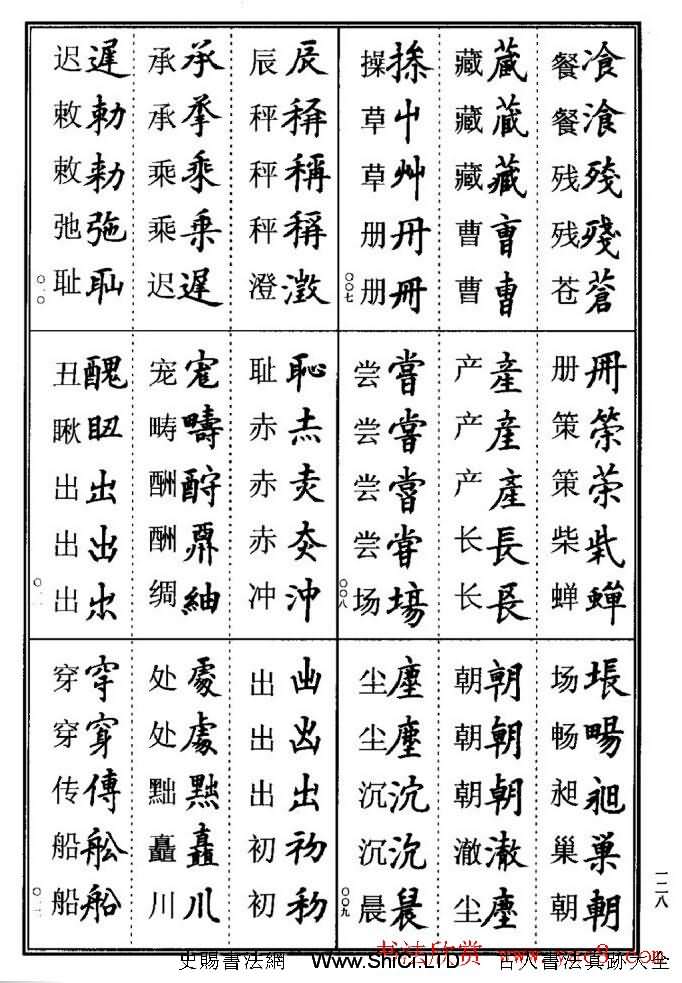 餐飡
餐湌
残残
残殘
苍蒼
藏蔵
藏藏
藏藏
曹曺
曹曹
操
草艸
草艸
册冊
册冊
〇〇七
辰辰
秤
秤稱
秤稱
澄澂
承承
承
乘乘
乘乗
迟遲
迟遲
敕勅
敕勑
弛弛
耻耻
〇一〇
册冊
策
策
柴
蝉蟬
产產
产產
产產
长長
长長
尝嘗
尝嘗
尝嘗
尝甞
场場
〇〇八
耻恥
赤
赤
赤
冲沖
宠寵
畴疇
酬酧
酬
绸紬
丑醜
瞅
出出
出出
出
〇一一
场塲
畅暢
昶昶
巢巢
朝朝
朝朝
朝朝
朝朝
澈澈
尘塵
尘塵
尘塵
沉沉
沉沉
晨晨
〇〇九
出
出
出出
初初
初
处處
处處
黜黜
矗矗
川川
穿穿
穿穿
传傳
船舩
船船
〇一二
一二八
书法欣赏
史賜書法網 www.ShiCi.LTD 古人書法真跡大全